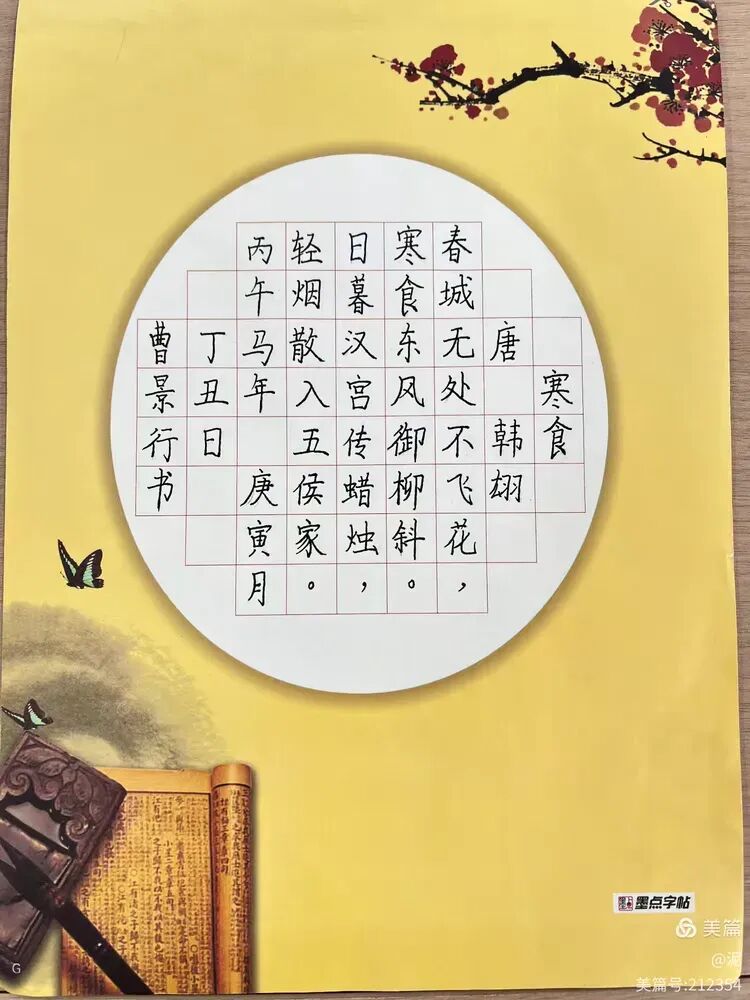 寒食
唐 韩翃
春城无处不飞花，
寒食东风御柳斜。
日暮汉宫传蜡烛，
轻烟散入五侯家。
丙午马年 庚寅月
丁丑日
曹景行书
墨点字帖
美篇
美篇号:212354
G